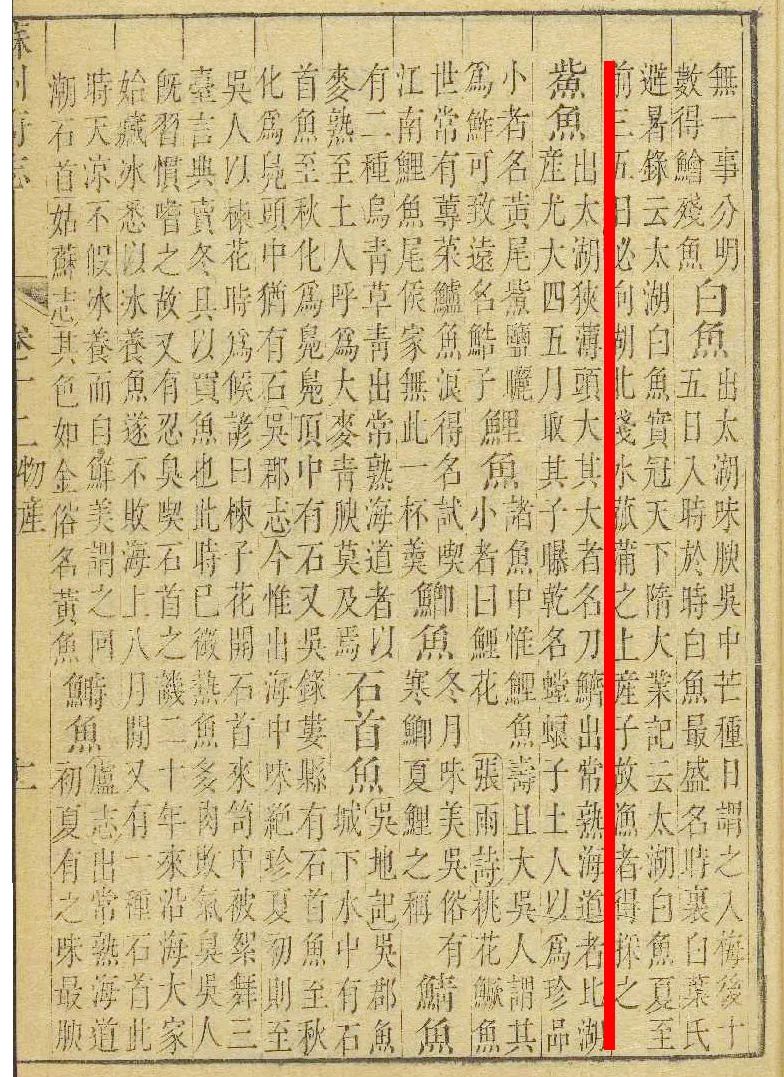 無一事分明
數得鱠殘魚
白魚
出太湖味腴吳中芒種日謂之入梅後十
五日入時於時白魚最盛名時裏白葉氏
避暑錄云太湖白魚實冠天下隋大業記云太湖白魚夏至
前三五日必向湖北淺水菰蒲之上産子故漁者得採之
鮆魚
出太湖狹薄頭大其大者名刀鱭出常熟海道者比湖
産尤大四五月取其子曝乾名螳螂子土人以爲珍品
小者名黃尾鮆鹽曬
爲鮓可致遠名鯌子
鯉魚
諸魚中惟鯉魚壽且大吳人謂其
小者曰鯉花 張雨詩桃花鱖魚
世常有蓴菜鱸魚浪得名試喫
江南鯉魚尾侯家無此一杯羹
鯽魚
冬月味美吳俗有
寒鯽夏鯉之稱
鯖魚
有二種烏青草青出常熟海道者以
麥熟至土人呼爲大麥青腴莫及焉
石首魚
吳地記吳郡魚
城下水中有石
首魚至秋化爲鳧鳧頂中有石又吳錄婁縣有石首魚至秋
化爲鳧頭中猶有石吳郡志今惟出海中味絕珍夏初則至
吳人以楝花時爲候諺曰楝子花開石首來笥中被絮舞三
臺言典賣冬具以買魚也此時已微熱魚多肉敗氣臭吳人
旣習慣嗜之故又有忍臭喫石首之譏二十年來沿海大家
始藏冰悉以冰養魚遂不敗海上八月間又有一種石首此
時天凉不假冰養而自鮮美謂之回
潮石首姑蘇志其色如金俗名黃魚
鰣魚
盧志出常熟海道
初夏有之味最腴
卷十二 物産